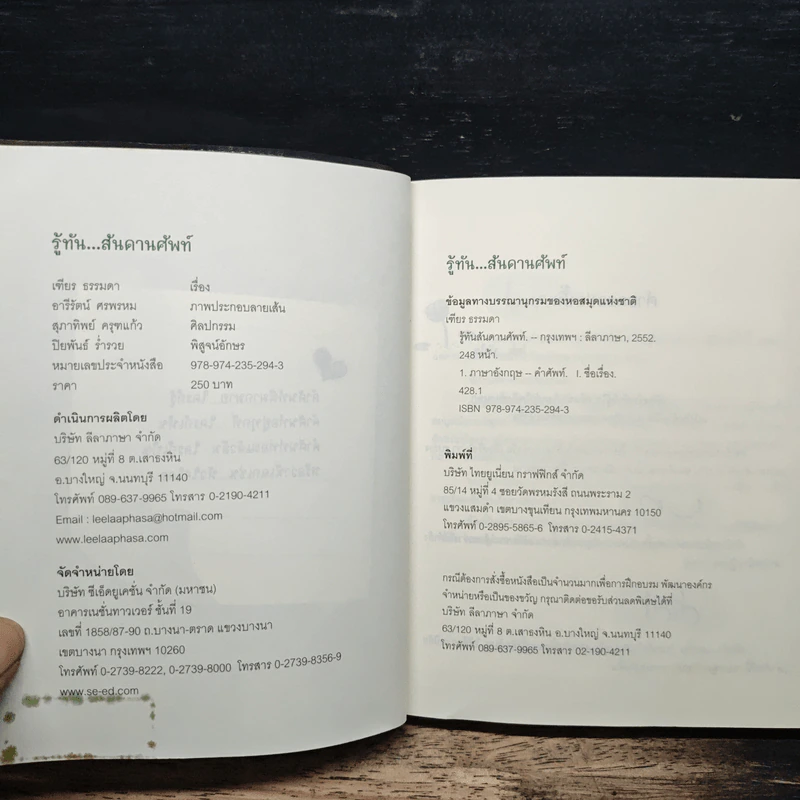 รู้ทัน...สันดานศัพท์
เฑียร ธรรมดา เรื่อง
อารีรัตน์ ศรพรหม ภาพประกอบลายเส้น
สุภาทิพย์ ครุฑแก้ว ศิลปกรรม
ปิยพันธ์ ร่ำรวย พิสูจน์อักษร
หมายเลขประจำหนังสือ 978-974-235-294-3
ราคา 250 บาท
ดำเนินการผลิตโดย
บริษัท ลีลาภาษา จำกัด
63/120 หมู่ที่ 8 ต.เสาธงหิน
อ.บางใหญ่ จ.นนทบุรี 11140
โทรศัพท์ 089-637-9965 โทรสาร 0-2190-4211
Email : leelaaphasa@hotmail.com
www.leelaaphasa.com
จัดจำหน่ายโดย
บริษัท ซีเอ็ดยูเคชั่น จำกัด (มหาชน)
อาคารเนชั่นทาวเวอร์ ชั้นที่ 19
เลขที่ 1858/87-90 ถ.บางนา-ตราด แขวงบางนา
เขตบางนา กรุงเทพฯ 10260
โทรศัพท์ 0-2739-8222, 0-2739-8000 โทรสาร 0-2739-8356-9
www.se-ed.com
รู้ทัน...สันดานศัพท์
ข้อมูลทางบรรณานุกรมของหอสมุดแห่งชาติ
เฑียร ธรรมดา
รู้ทันสันดานศัพท์. -- กรุงเทพฯ : ลีลาภาษา, 2552.
248 หน้า.
1. ภาษาอังกฤษ -- คำศัพท์. I. ชื่อเรื่อง.
428.1
ISBN 978-974-235-294-3
พิมพ์ที่
บริษัท ไทยยูเนี่ยน กราฟฟิกส์ จำกัด
85/14 หมู่ที่ 4 ซอยวัดพรหมรังสี ถนนพระราม 2
แขวงแสมดำ เขตบางขุนเทียน กรุงเทพมหานคร 10150
โทรศัพท์ 0-2895-5865-6 โทรสาร 0-2415-4371
กรณีต้องการสั่งซื้อหนังสือเป็นจำนวนมากเพื่อการฝึกอบรม พัฒนาองค์กร
จำหน่ายหรือเป็นของขวัญ กรุณาติดต่อขอรับส่วนลดพิเศษได้ที่
บริษัท ลีลาภาษา จำกัด
63/120 หมู่ที่ 8 ต.เสาธงหิน อ.บางใหญ่ จ.นนทบุรี 11140
โทรศัพท์ 089-637-9965 โทรสาร 02-190-4211